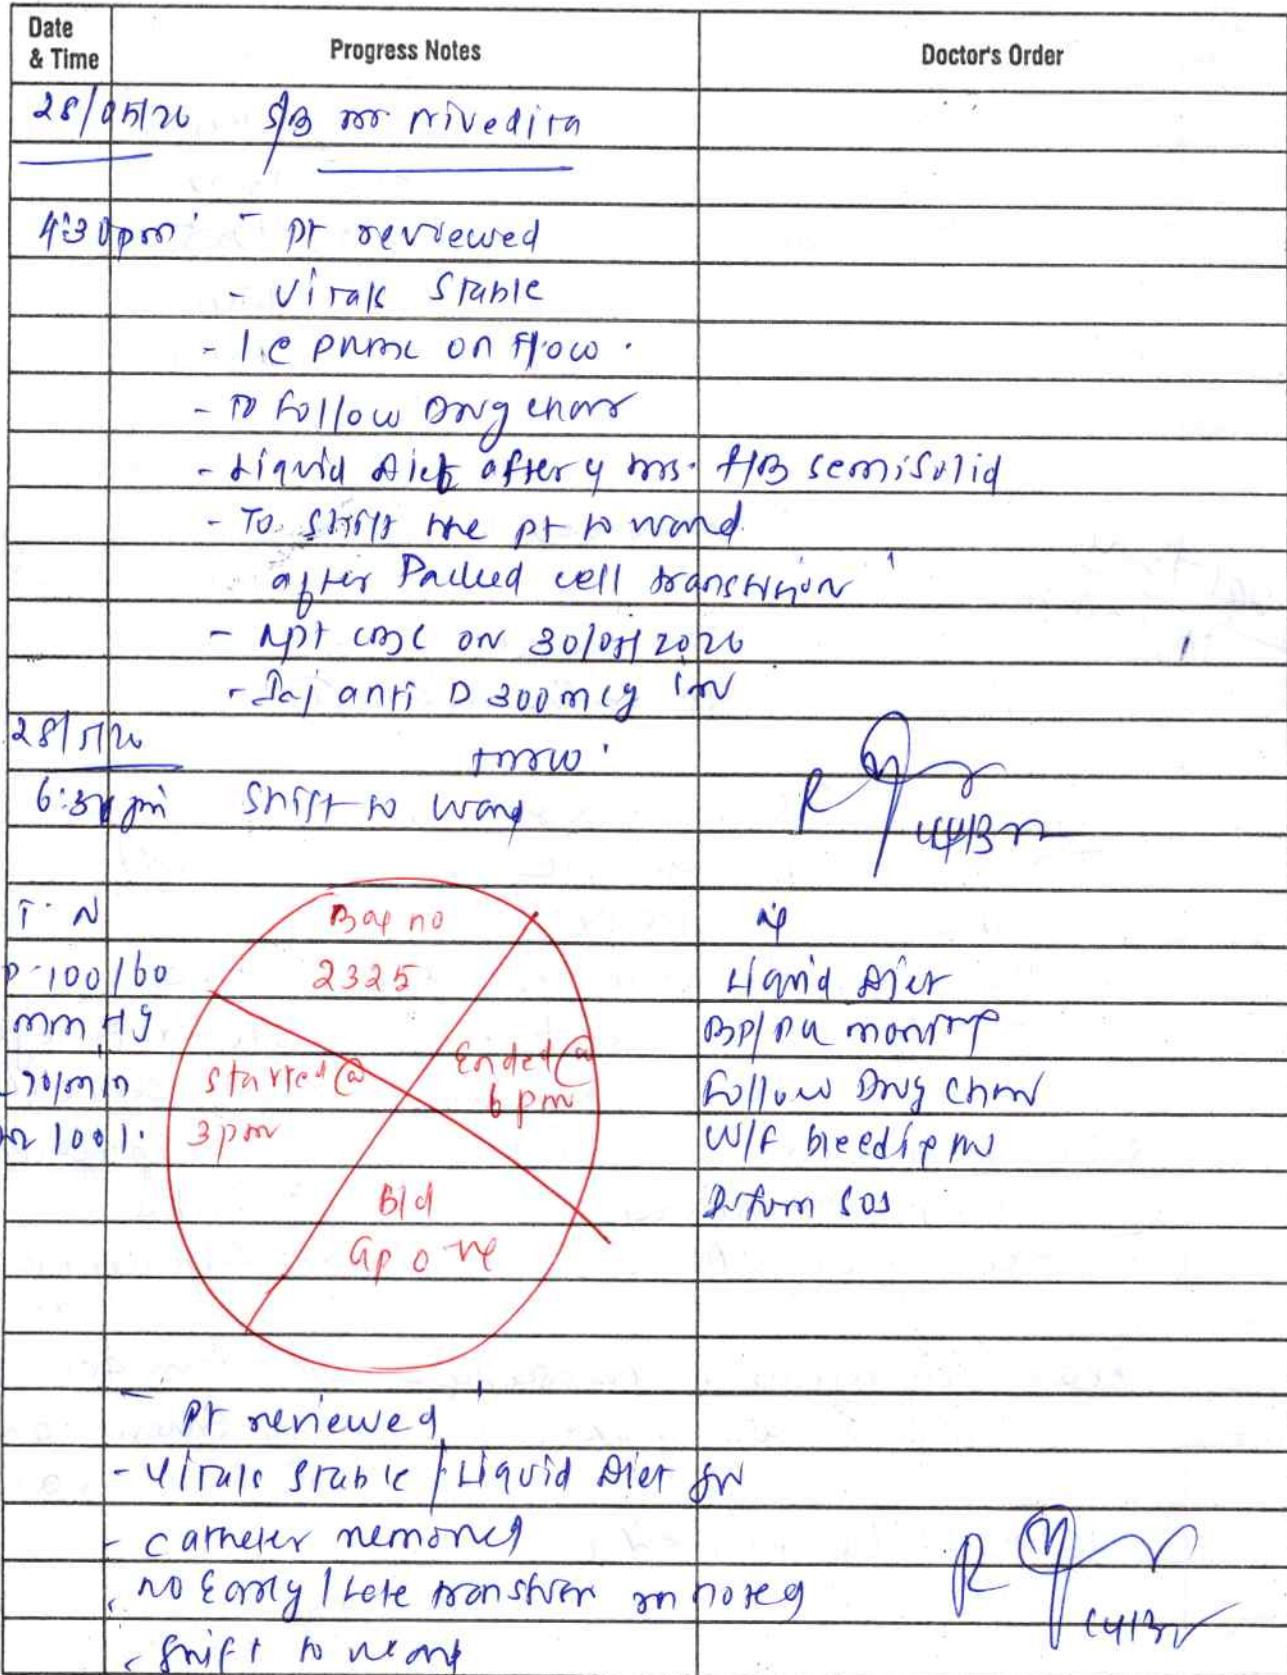 Date & Time Progress Notes Doctor's Order
28/05/26 S/B Dr Nivedita
4:30pm - Pt reviewed
- Vitals Stable
- 1 @ PRBC on flow.
- To follow Drug chart
- Liquid Diet after 4 hrs. F/B semisolid
- To shift the pt to ward
after Packed cell transfusion
- Rpt CBC on 30/05/2026
- Inj anti D 300 mcg IM
28/5/26 tmrw.
6:30 pm Shift to ward
T - N Bag no
100/60 2325 Liquid Diet
mmHg BP/PR monitor
70/min Started @ 3pm Ended @ 6pm Follow Drug Chart
100%. W/F bleeding PV
Bld Inform SOS
Gp O -ve
- Pt reviewed
- Vitals Stable / Liquid Diet
- Catheter removed
- No Early / Late transfusion rxn noted
- Shift to ward